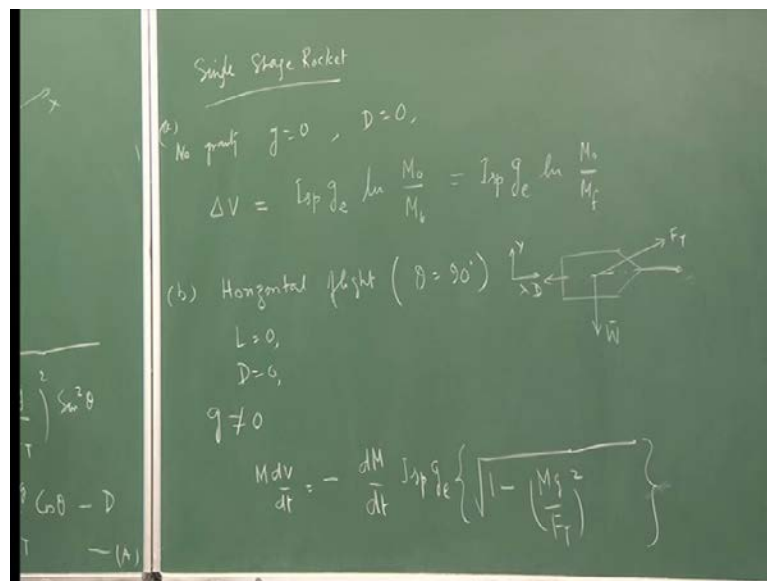 x
)² Sin²θ
T
Cosθ - D
T
- (A)
Single Stage Rocket
(a) No gravity g=0 , D=0,
ΔV = Isp ge ln M₀/M_b = Isp ge ln M₀/M_f
(b) Horizontal flight (θ=90°)
Y
X
D
F_T
W̄
L=0,
D=0,
g≠0
M dv/dt = - dM/dt Isp ge {√(1 - (Mg/F_T)²)}